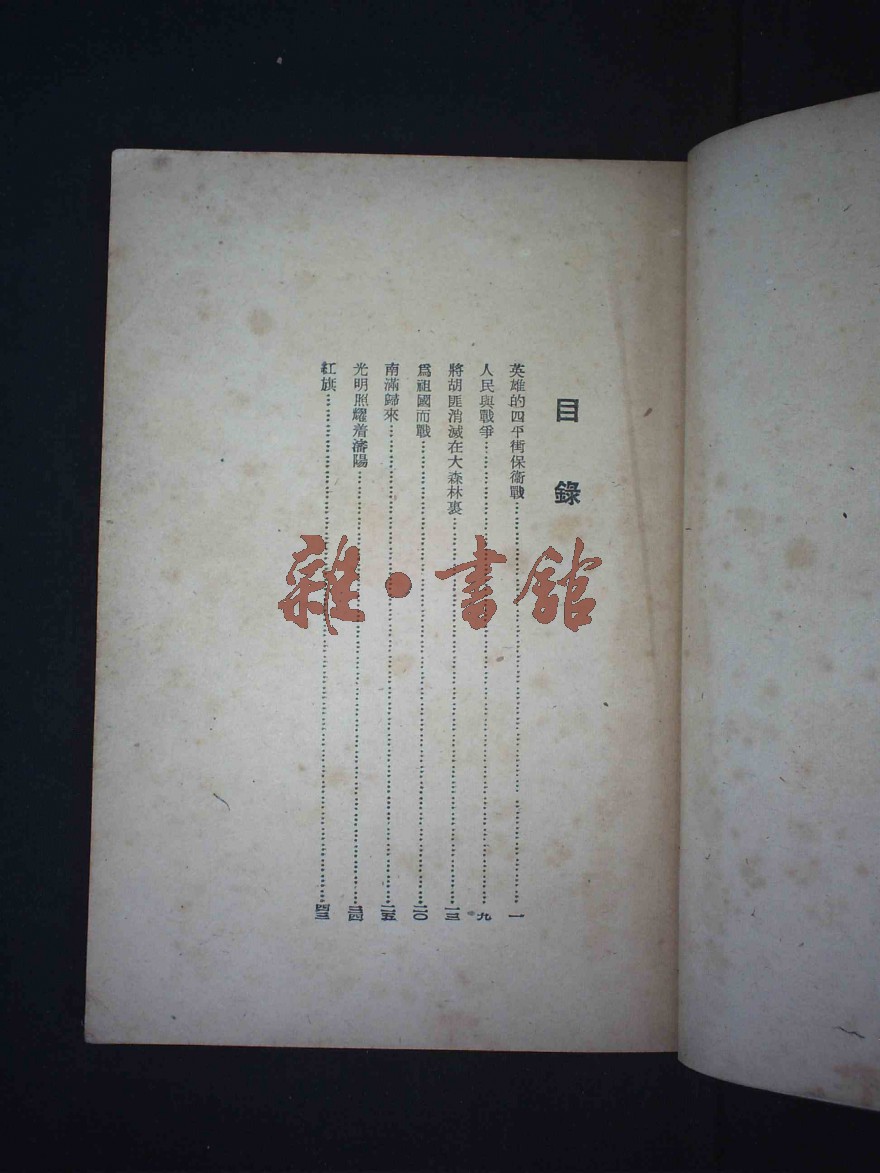 目錄
英雄的四平街保衞戰……一
人民與戰爭……九
將胡匪消滅在大森林裏……一三
爲祖國而戰……二〇
南滿歸來……二五
光明照耀着瀋陽……三四
紅旗……四三
雜·書館